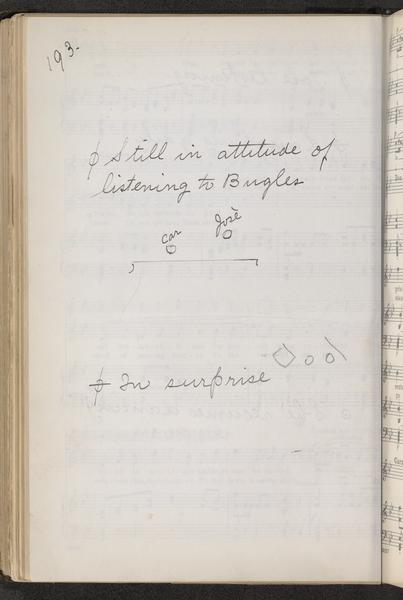 193.
ϕ Still in attitude of
listening to Bugles
Car José
ϕ In surprise